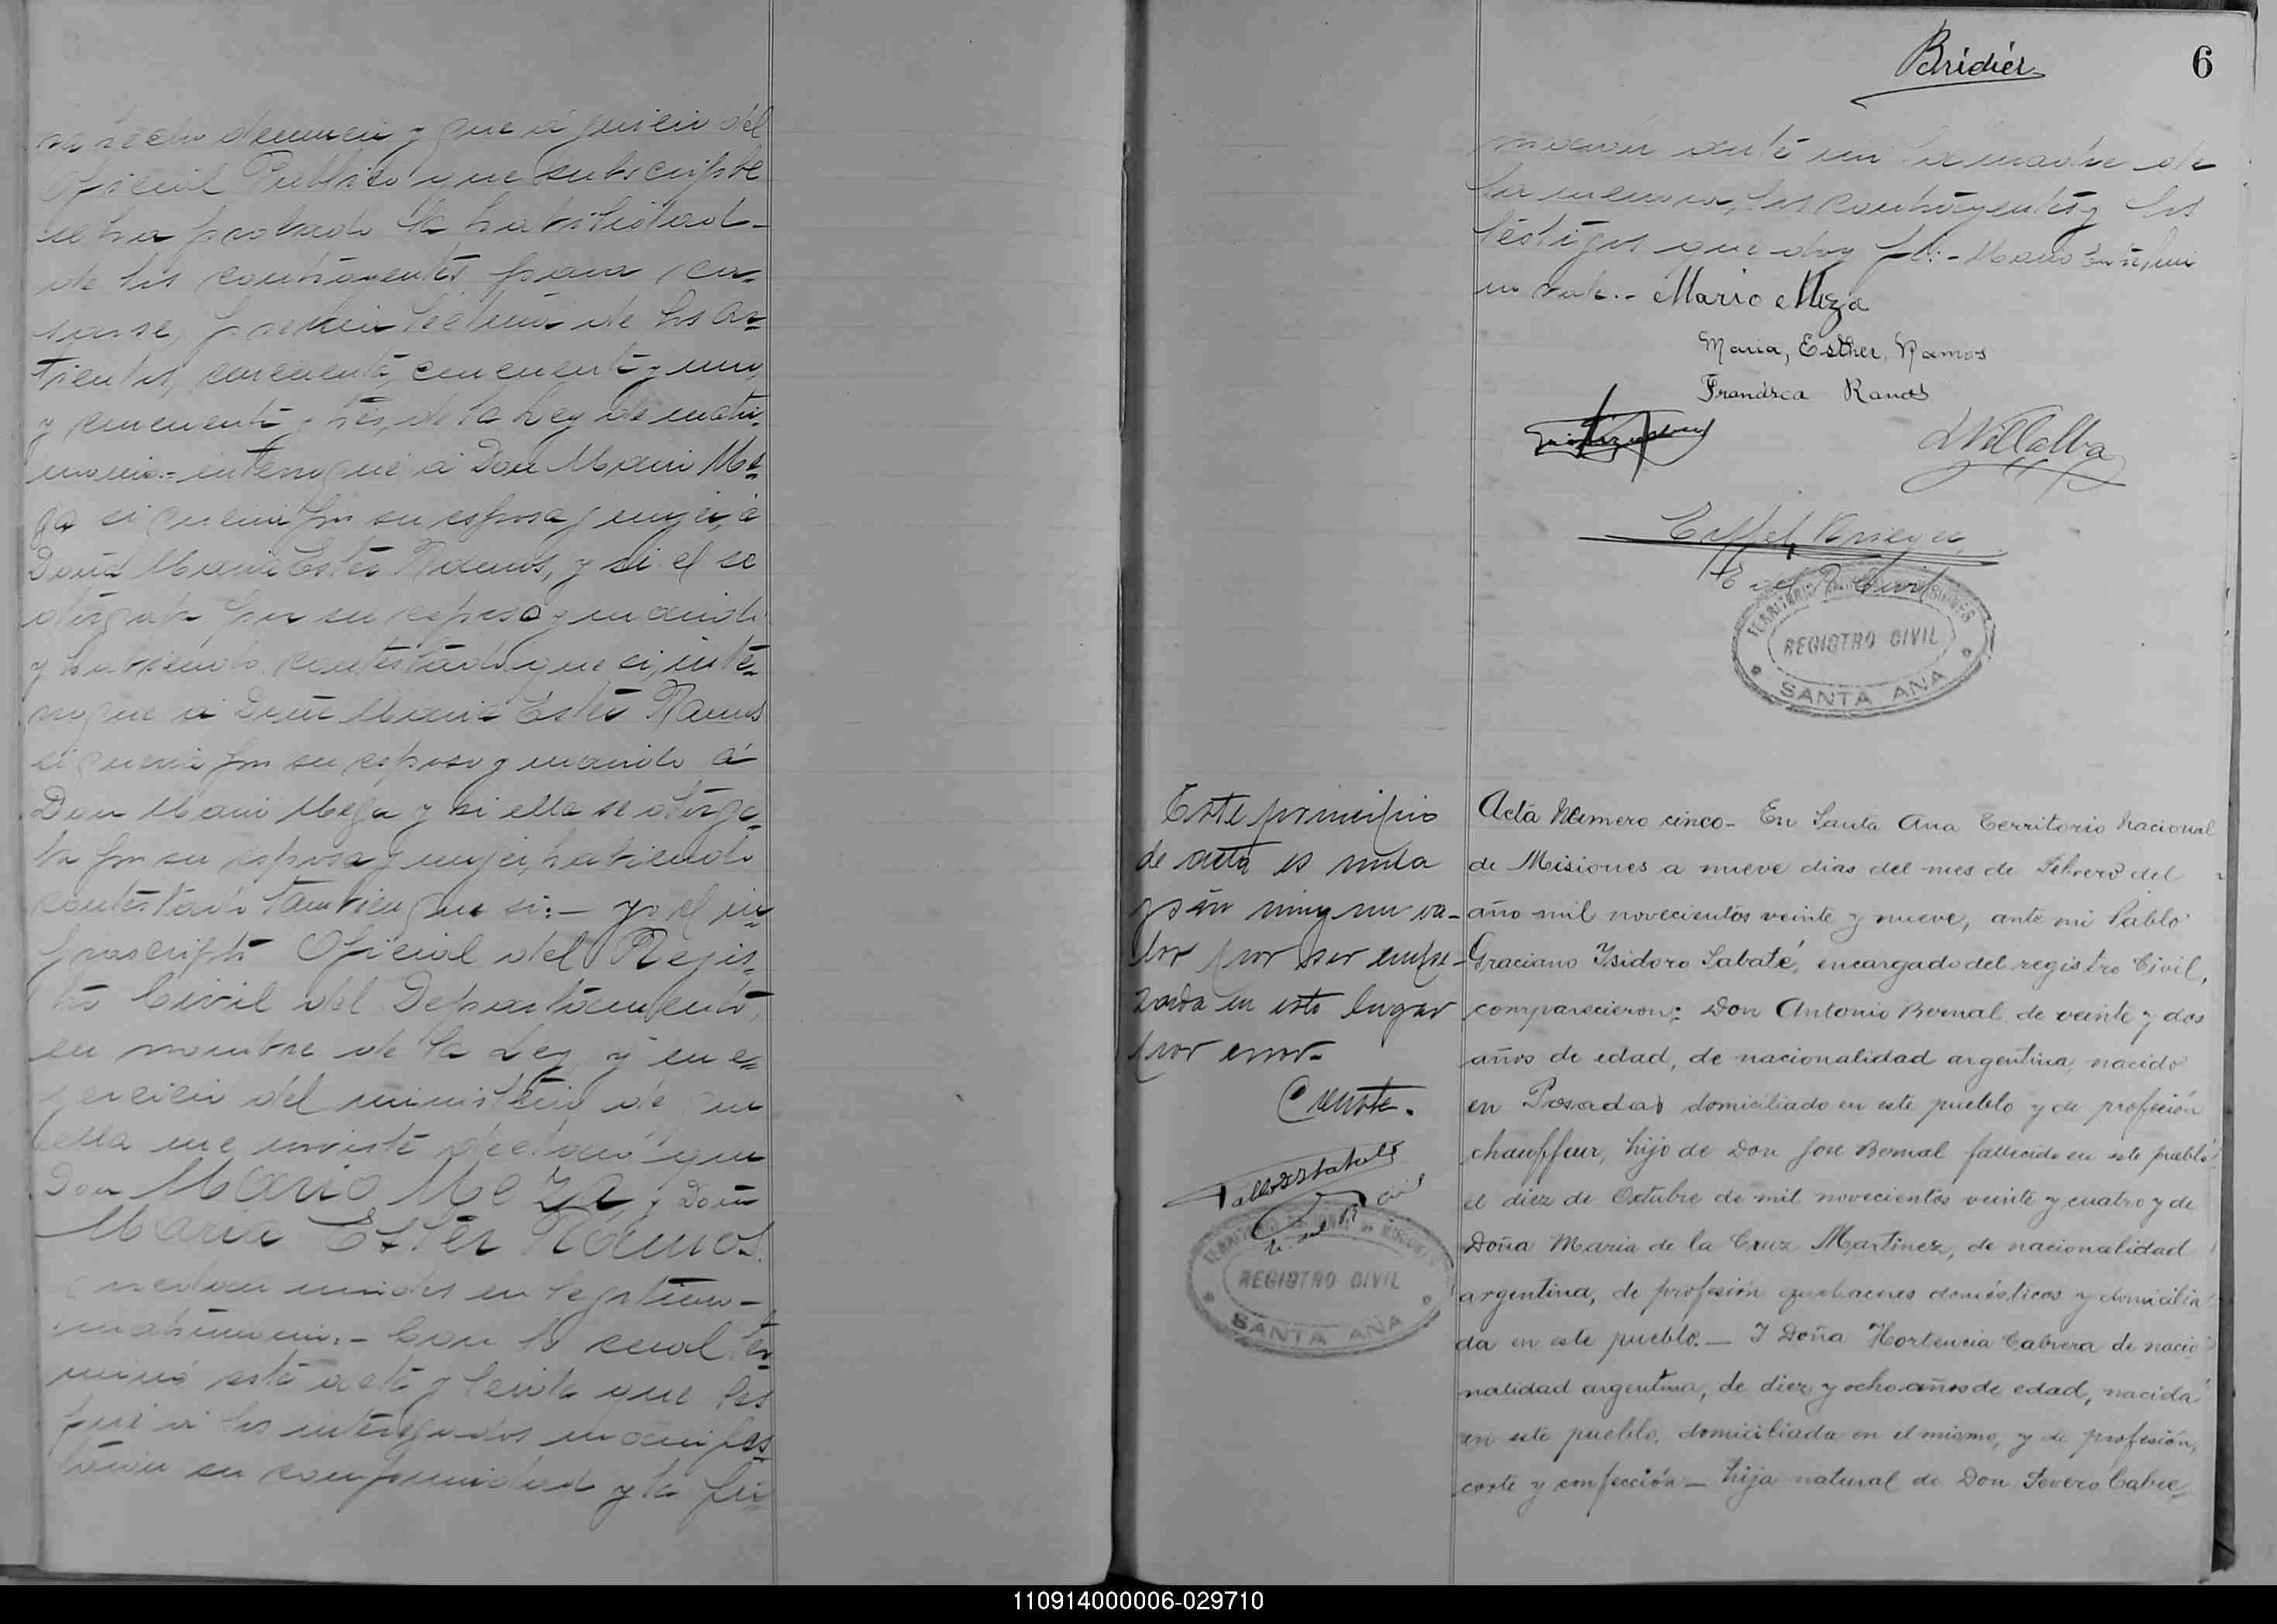 se hecho denuncia y que a juicio del
Oficial Publico que subscribe
se ha probado la habilidad
de los contrayentes para ca=
sarse, previa lectura de los Ar=
tículos, cincuenta, cincuenta y uno,
y cincuenta y tres, de la Ley de matri=
monio.- interrogué a Don Mario Me=
za si queria por su esposa y mujer, a
Doña Maria Ester Ramos, y si el se
otorgaba por su esposo y marido
y habiendo contestado que si, inte=
rrogue a Doña Maria Ester Ramos
si queria por su esposo y marido á
Don Mario Meza y si ella se otorga=
ba por su esposa y mujer, habiendo
contestado tambien que si:- yo el in=
frascripto Oficial del Regis=
tro Civil del Departamento,
en nombre de la Ley, y en e=
jercicio del ministerio de que
ella me inviste declaró que
Don Mario Meza y Doña
Maria Ester Ramos.
quedan unidos en legitimo-
matrimonio.- Con lo cual ter=
minó esta acta y leida que les
fué a los interesados manifes=
taron su conformidad y la fir=
Bridier
6
maron ante mi la madre de
la menor, los contrayentes y los
testigos que doy fé:- Mario
Mario Meza
Maria, Esther, Ramos
Francisca Ramos
Villalba
E del R. Civil
TERRITORIO NACIONAL DE MISIONES
REGISTRO CIVIL
SANTA ANA
Este principio
de acta es nula
y sin ningun va-
lor por ser empe-
zada en este lugar
por error-
Conste.
TERRITORIO NACIONAL DE MISIONES
REGISTRO CIVIL
SANTA ANA
Acta Número cinco- En Santa Ana Territorio Nacional
de Misiones a nueve dias del mes de Febrero del
año mil novecientos veinte y nueve, ante mi Pablo
Graciano Isidoro Sabaté, encargado del registro Civil,
comparecieron: Don Antonio Bernal de veinte y dos
años de edad, de nacionalidad argentina, nacido
en Posadas domiciliado en este pueblo y de profeción
chauffeur, hijo de Don Jose Bernal fallecido en este pueblo
el diez de Octubre de mil novecientos veinte y cuatro y de
Doña Maria de la Cruz Martinez, de nacionalidad
argentina, de profesión quehaceres domésticos y domicilia
da en este pueblo.- Y Doña Hortencia Cabrera de nacio
nalidad argentina, de diez y ocho años de edad, nacida
en este pueblo, domiciliada en el mismo, y de profesión,
corte y confección- hija natural de Don Severo Cabre=
110914000006-029710